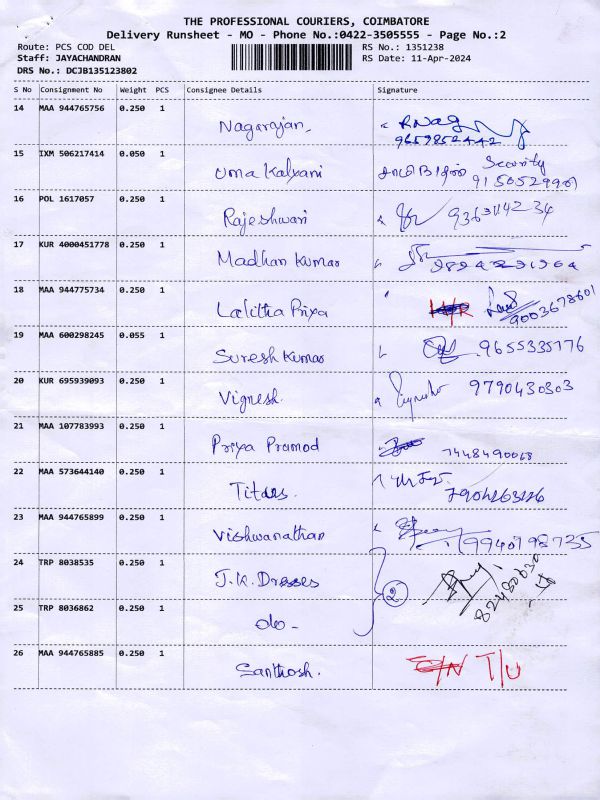 THE PROFESSIONAL COURIERS, COIMBATORE
Delivery Runsheet - MO - Phone No.:0422-3505555 - Page No.:2
Route: PCS COD DEL RS No.: 1351238
Staff: JAYACHANDRAN RS Date: 11-Apr-2024
DRS No.: DCJB135123802
S No Consignment No Weight PCS Consignee Details Signature
14 MAA 944765756 0.250 1 Nagarajan RNag
9659852442
15 IXM 506217414 0.050 1 Uma Kalyani Security
16 POL 1617057 0.250 1 Rajeshwari
17 KUR 4000451778 0.250 1 Madhan Kumar
18 MAA 944775734 0.250 1 Lalitha Priya
9003678601
19 MAA 600298245 0.055 1 Suresh Kumar 9655335776
20 KUR 695939093 0.250 1 Vignesh. 9790430303
21 MAA 107783993 0.250 1 Priya Pramod 7448490068
22 MAA 573644140 0.250 1
23 MAA 944765899 0.250 1 Vishwanathan 9940798735
24 TRP 8038535 0.250 1 J.K. Dresses 2
25 TRP 8036862 0.250 1 do -
26 MAA 944765885 0.250 1 Santhosh. T/U